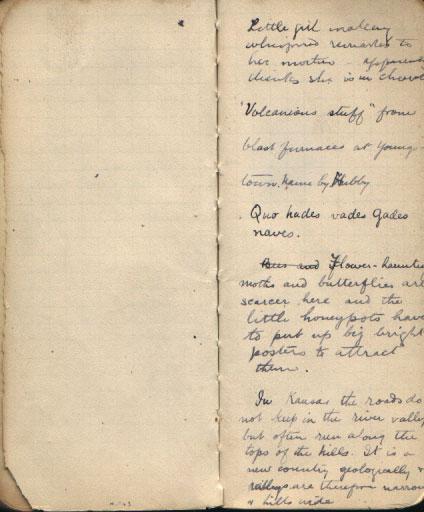 Little girl making
whispered remarks to
her mother – apparent
thinks she is in church
"Volcanious stuff" from
blast furnaces at Young-
town. Name by Hubby
Quo hades vades Gades
naves.
Bees and Flower-haunting
moths and butterflies are
scarcer here and the
little honeypots have
to put up big bright
posters to attract
them.
In Kansas the roads do
not keep in the river valley
but often run along the
tops of the hills. It is a
new country geologically &
valleys are therefore narrow
& hills wide